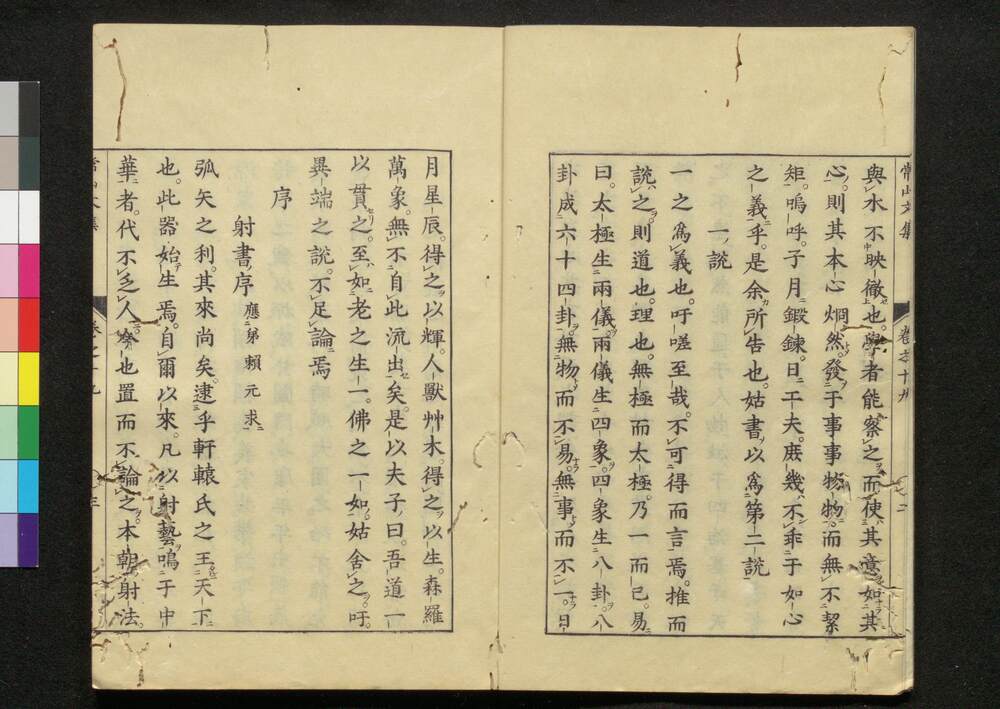 與水不映徹也。學者能察之而使其意如其
心。則其本心烱然。發于事事物物。而無不絜
矩。嗚呼。子月鍛鍊。日工夫。庶幾不乖于如心
之義乎。是余所告也。姑書以爲第二說
一說
一之爲義也。吁嗟至哉。不可得而言焉。推而
說之。則道也。理也。無極而太極。乃一而已。易
曰。太極生兩儀。兩儀生四象。四象生八卦。八
卦成六十四卦。無物而不易。無事而不一。日
月星辰。得之以輝。人獸艸木。得之以生。森羅
萬象。無不自此流出矣。是以夫子曰。吾道一
以貫之。至如老之生一。佛之一如。姑舍之。吁。
異端之說。不足論焉
序
射書序 應弟賴元求
弧矢之利。其來尚矣。逮乎軒轅氏之王天下
也。此器始生焉。自爾以來。凡以射藝鳴于中
華者。代不乏人。也置而不論之。本朝射法。
常山文集
卷之十九
二
三